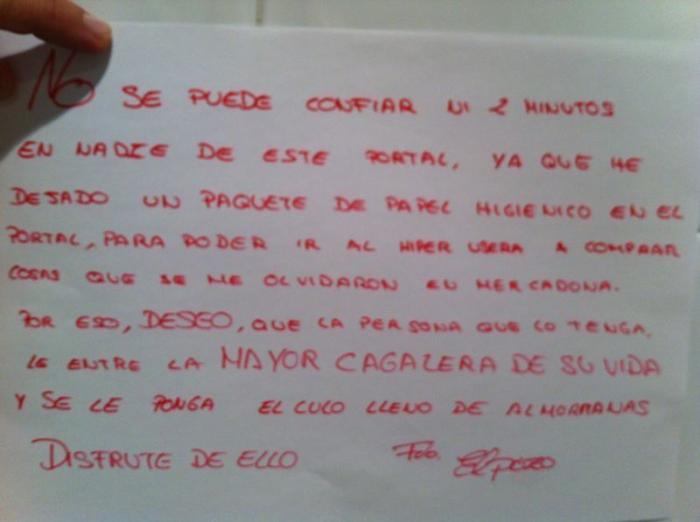 No SE PUEDE CONFIAR NI 2 MINUTOS
EN NADIE DE ESTE PORTAL, YA QUE HE
DEJADO UN PAQUETE DE PAPEL HIGIENICO EN EL
PORTAL, PARA PODER IR AL HIPER USERA A COMPRAR
COSAS QUE SE ME OLVIDARON EN MERCADONA.
POR ESO, DESEO, QUE LA PERSONA QUE LO TENGA,
LE ENTRE LA MAYOR CAGALERA DE SU VIDA
Y SE LE PONGA EL CULO LLENO DE ALMORRANAS
DISFRUTE DE ELLO Fdo.